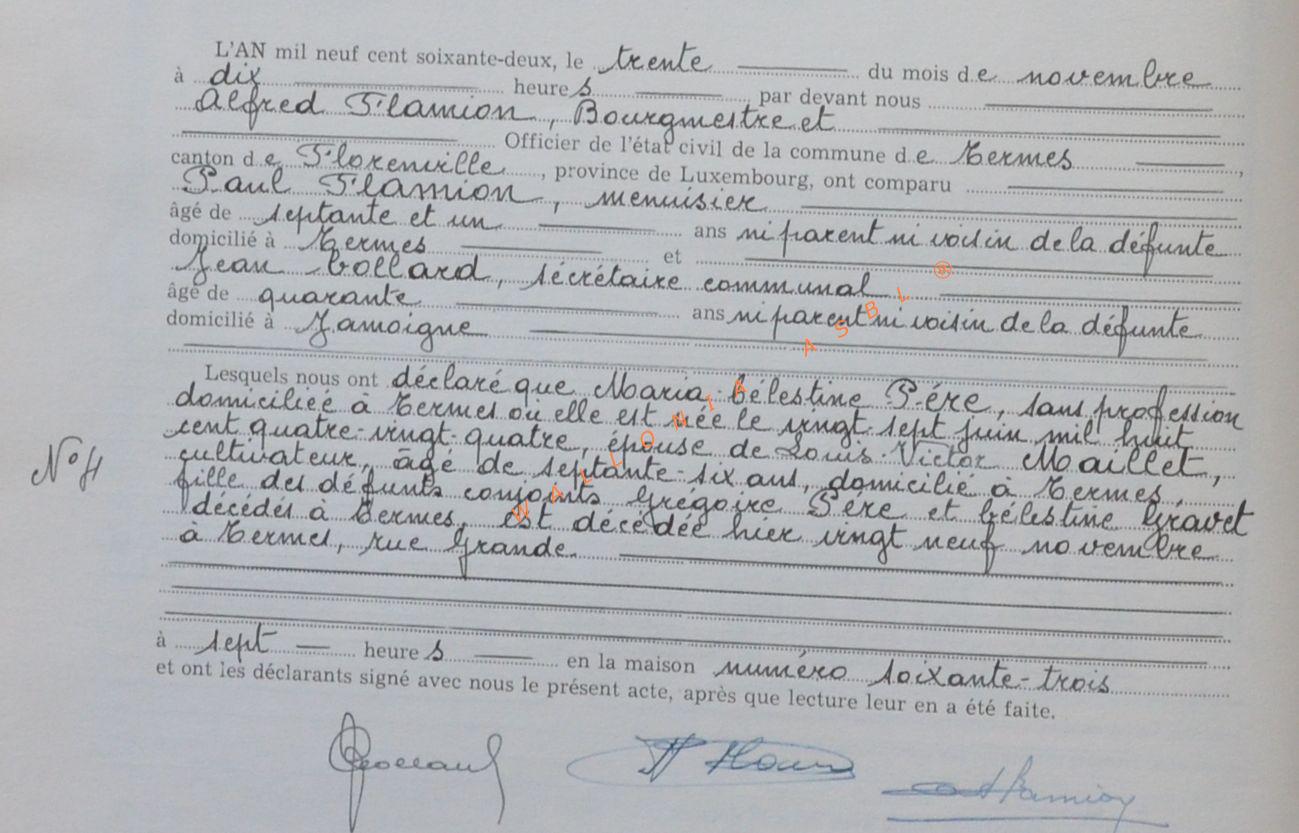 L'AN mil neuf cent soixante-deux, le trente du mois de novembre
à dix heures par devant nous
Alfred Flamion, Bourgmestre et
Officier de l'état civil de la commune de Termes
canton de Florenville, province de Luxembourg, ont comparu
Paul Flamion, menuisier
âgé de septante et un ans ni parent ni voisin de la défunte
domicilié à Termes et
Jean Collard, sécrétaire communal
âgé de quarante ans ni parent ni voisin de la défunte
domicilié à Jamoigne
Lesquels nous ont déclaré que Maria Célestine Pére, sans profession
domiciliée à Termes où elle est née le vingt-sept juin mil huit
cent quatre-vingt-quatre, épouse de Louis Victor Maillet,
cultivateur, âgé de septante-six ans, domicilié à Termes,
fille des défunts conjoints Grégoire Pére et Célestine Gravet
décédés à Termes, est décédée hier vingt neuf novembre
à Termes, rue Grande
N° 4
à sept heures en la maison numéro soixante-trois
et ont les déclarants signé avec nous le présent acte, après que lecture leur en a été faite.
WALLONIA ASBL ®